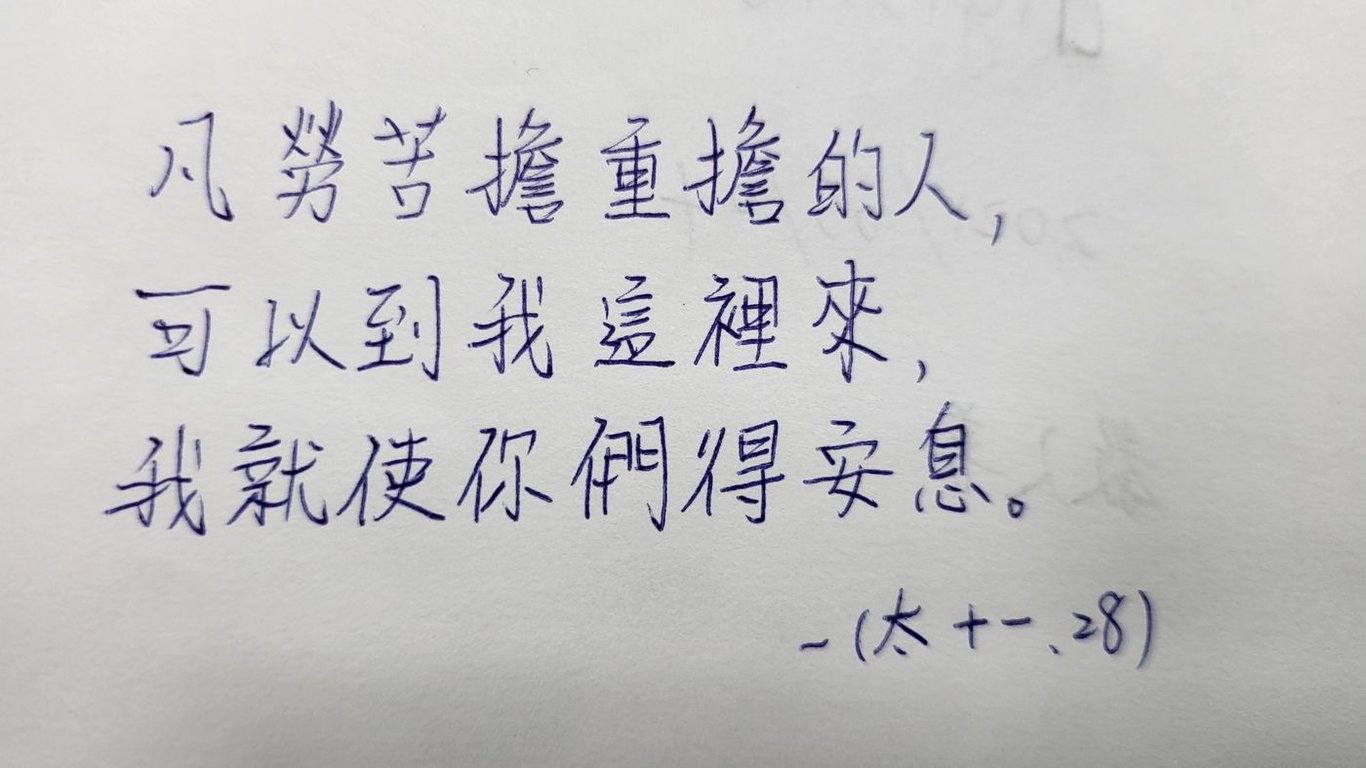 凡勞苦擔重擔的人,
可以到我這裡來,
我就使你們得安息。
-(太十一.28)